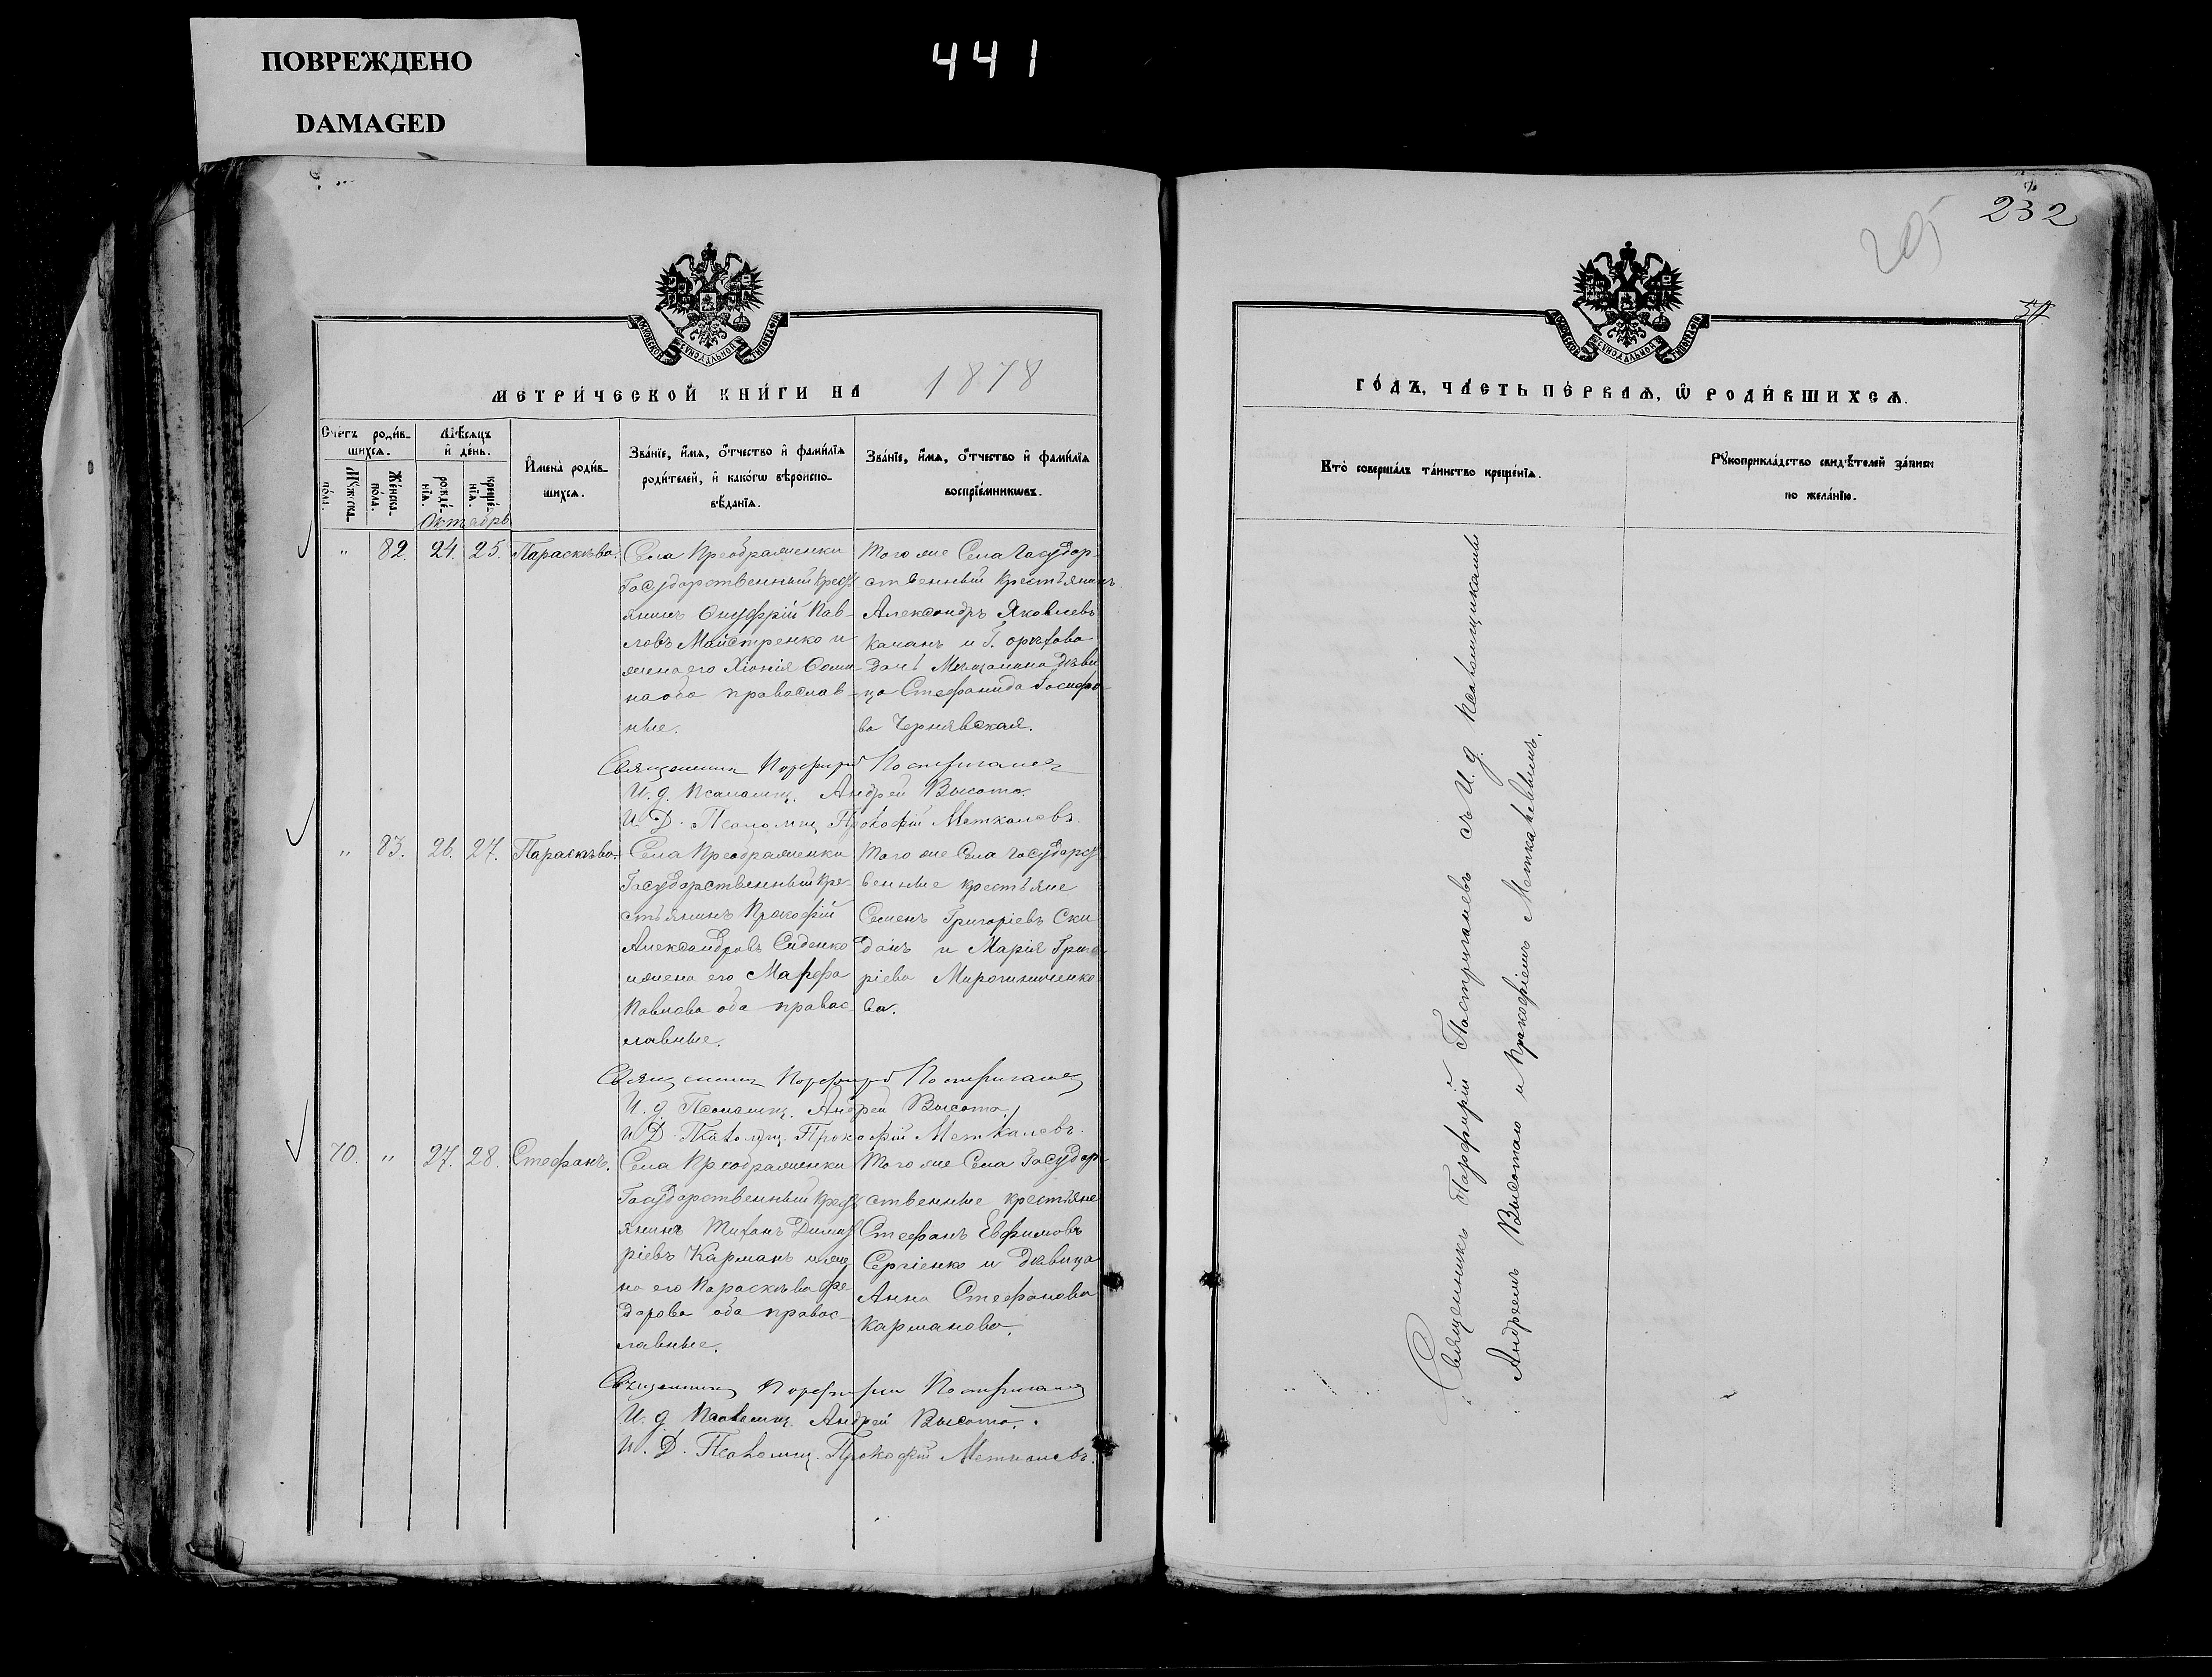 ПОВРЕЖДЕНО
DAMAGED
441
232
205
МОСКОВСКОЙ СѴНОДАЛЬНОЙ ТИПОГРАФІИ
МЕТРИ́ЧЕСКОЙ КНИ́ГИ НА 1878
Сче́тъ роди́в-
шихсѧ.
Мꙋ́жска
по́ла.
Же́нска
по́ла.
Мѣ́сѧцъ
и҆ де́нь.
рожде́
нїѧ.
креще́
нїѧ.
Октябрь
И҆мена̀ роди́в-
шихсѧ.
Зва́нїе, и҆́мѧ, ѻ҆́тчество и҆ фами́лїѧ
роди́телей, и҆ како́гѡ вѣроиспо-
вѣ́данїѧ.
Зва́нїе, и҆́мѧ, ѻ҆́тчество и҆ фами́лїѧ
воспрїе́мникѡвъ.
" 82. 24. 25. Параскева.
Села Преображенки
Государственный крест
янинъ Онуфрій Пав-
ловъ Майстренко и
жена его Хіонія Фоми-
на оба православ-
ные.
Того же Села Государ-
ственный крестьянинъ
Александръ Яковлевъ
Качанъ и Г. Орѣхова
Дочь Мещанина Дѣви-
ца Стефанида Іосифо-
ва Чернявская.
Священникъ Порфирій Постриганев
И. д. Псаломщ. Андрей Высота.
И. Д. Псаломщ. Прокофій Меткалевъ.
" 83. 26. 27. Параскева.
Села Преображенки
Государственный кре-
стьянинъ Прокофій
Александровъ Сиденко
и жена его Марфа
Павлова оба правос-
лавные.
Того же Села Государст
венные крестьяне
Семенъ Григоріевъ Ски
данъ и Марія Григо-
ріева Мирошниченко-
ва.
Священникъ Порфирій Постриганев
И. д. Псаломщ. Андрей Высота.
И. Д. Псаломщ. Прокофій Меткалевъ.
70. " 27. 28. Стефанъ.
Села Преображенки
Государственный крест
янинъ Тихонъ Димит
ріевъ Карманъ и же
на его Параскева Фе
дорова оба правос-
лавные.
Того же Села Государ-
ственные крестьяне
Стефанъ Евфимовъ
Сергіенко и Дѣвица
Анна Стефанова
Карманова.
Священникъ Порфирій Постриганев
И. д. Псаломщ. Андрей Высота.
И. Д. Псаломщ. Прокофій Меткалевъ.
МОСКОВСКОЙ СѴНОДАЛЬНОЙ ТИПОГРАФІИ
ГО́ДЪ, ЧА́СТЬ ПЕ́РВАѦ, Ѡ҆ РОДИ́ВШИХСѦ.
Кто̀ соверша́лъ та́инство креще́нїѧ.
Рꙋкоприкла́дство свидѣ́телей за́писи
по жела́нїю.
Священникъ Порфирій Постриганевъ съ И. д. Псаломщиками
Андреемъ Высотою и Прокофіемъ Меткалевымъ.